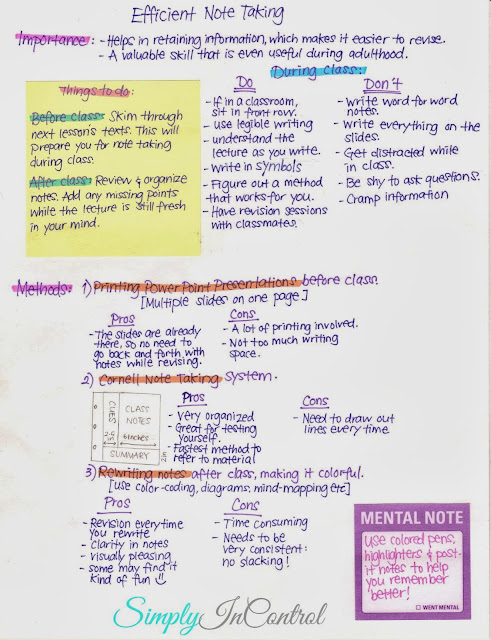 Efficient Note Taking
Importance: - Helps in retaining information, which makes it easier to revise.
- A valuable skill that is even useful during adulthood.
During class:
Things to do:
Before class: Skim through
next lesson's texts. This will
prepare you for note taking
during class.
After class: Review & organize
notes. Add any missing points
while the lecture is still fresh
in your mind.
Do
- If in a classroom,
sit in front row.
- use legible writing
- understand the
lecture as you write.
- Write in symbols
- Figure out a method
that works for you.
- Have revision sessions
with classmates.
Don't
- Write word for word
notes.
- Write everything on the
slides.
- Get distracted while
in class.
- Be shy to ask questions.
- Cramp information
Methods: 1) Printing PowerPoint Presentations before class.
[Multiple slides on one page]
Pros
- The slides are already
there, so no need to
go back and forth with
notes while revising.
Cons
- A lot of printing involved.
- Not too much writing
space.
2) Cornell Note Taking System.
CUES
2½in
CLASS
NOTES
6inches
SUMMARY
2in
Pros
- Very organized
- Great for testing
yourself.
- Fastest method to
refer to material
Cons
- Need to draw out
lines every time
3) Rewriting notes after class, making it colorful.
[use color-coding, diagrams, mind-mapping etc]
Pros
- Revision everytime
you rewrite
- Clarity in notes
- visually pleasing
- some may find it
kind of fun
Cons
- Time consuming
- Needs to be
very consistent:
no slacking!
MENTAL NOTE
use colored pens,
highlighters & post-
it notes to help
you remember
better!
WENT MENTAL
SimplyInControl